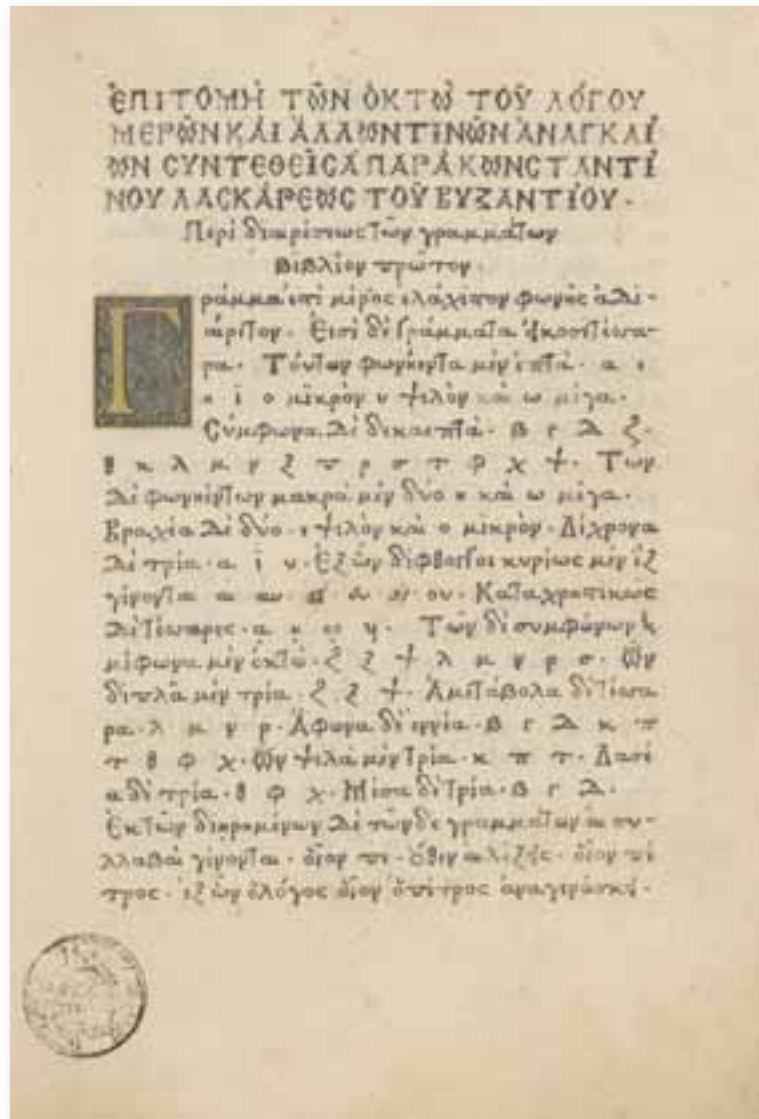 ἘΠΙΤΟΜῊ ΤΩ͂Ν ὈΚΤῺ ΤΟΥ͂ ΛΌΓΟΥ
ΜΕΡΩ͂Ν ΚΑῚ ἌΛΛΩΝ ΤΙΝΩ͂Ν ἈΝΑΓΚΑΊ
ΩΝ ΣΥΝΤΕΘΕΙ͂ΣΑ ΠΑΡᾺ ΚΩΝΣΤΑΝΤΊ
ΝΟΥ ΛΑΣΚΆΡΕΩΣ ΤΟΥ͂ ΒΥΖΑΝΤΊΟΥ ·
Περὶ διαιρέσεως τῶν γραμμάτων
Βιβλίον πρῶτον ·
Γράμμα ἐστὶ μέρος ἐλάχιστον φωνῆς ἀδι-
αίρετον · Εἰσὶ δὲ γράμματα εἰκοσιτέσσα-
ρα · Τούτων φωνήεντα μὲν ἑπτά · α ε
η ϊ ο μικρὸν υ ψιλὸν καὶ ω μέγα ·
Σύμφωνα δὲ δεκαεπτά · β γ δ ζ ·
θ κ λ μ ν ξ π ρ σ τ φ χ ψ · Τῶν
δὲ φωνηέντων μακρὰ μὲν δύο η καὶ ω μέγα ·
Βραχέα δὲ δύο · ε ψιλὸν καὶ ο μικρὸν · Δίχρονα
δὲ τρία · α ϊ υ · Ἐξ ὧν δίφθογγοι κυρίως μὲν ἓξ
γίνονται αι αυ ει ευ οι ου · Καταχρηστικῶς
δὲ τέσσαρες · Τῶν δὲ συμφώνων ἡ
μίφωνα μὲν ὀκτώ · ζ ξ ψ λ μ ν ρ σ · Ὧν
διπλᾶ μὲν τρία · ζ ξ ψ · Ἀμετάβολα δὲ τέσσα
ρα · λ μ ν ρ · Ἄφωνα δὲ ἐννέα · β γ δ κ π
τ θ φ χ · Ὧν ψιλὰ μὲν τρία · κ π τ · Δασέ
α δὲ τρία · θ φ χ · Μέσα δὲ τρία · β γ δ ·
Ἐκ τῶν διῃρημένων δὲ τῶνδε γραμμάτων αἱ συ-
λλαβαὶ γίνονται · οἷον πε · ὅθεν αἱ λέξεις · οἷον πέ
τρος · ἐξ ὧν ὁ λόγος οἷον ὁ πέτρος ἀναγινώσκει ·